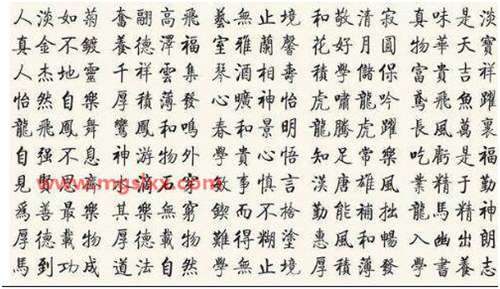 人淡如菊 奮翮高飛 藝無止境 和敬清寂 真味是淡
真金不鍍 養德澤福 室雅蘭馨 花好月圓 物華天寶
人杰地靈 千祥雲集 琴酒相壽 積學儲保 富貴吉祥
怡然自樂 厚積薄發 心曠神怡 虎嘯龍吟 鳶飛魚躍
龍飛鳳舞 鸞鳳和鳴 春和景明 龍騰虎躍 長風萬裏
自强不息 神游物外 學貴心悟 知足常樂 吃虧是福
見賢思齊 敏事慎言 漢唐雄風 業精于勤
爲善最樂 其樂無窮 鍥而不捨 勤能補拙 龍馬精神
厚德載物 難得糊塗 惠風和暢 入幽出朗
馬到功成 道法自然 學無止境 厚積薄發 學書養志